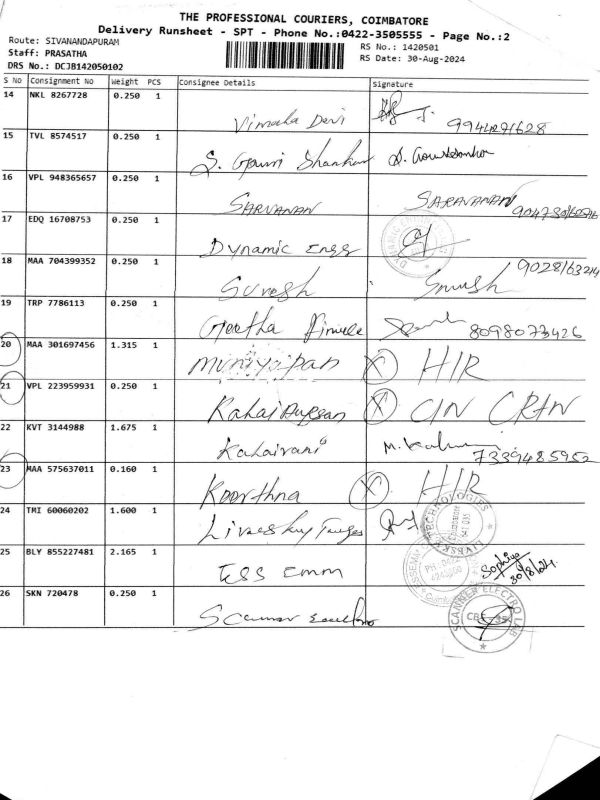 THE PROFESSIONAL COURIERS, COIMBATORE
Delivery Runsheet - SPT - Phone No.:0422-3505555 - Page No.:2
Route: SIVANANDAPURAM
RS No.: 1420501
Staff: PRASATHA
RS Date: 30-Aug-2024
DRS No.: DCJB142050102
S No Consignment No Weight PCS Consignee Details Signature
14 NKL 8267728 0.250 1 Vimala Devi
15 TVL 8574517 0.250 1 S. Gowri Shankar
16 VPL 948365657 0.250 1 SARVANAN SARAVANAN
17 EDQ 16708753 0.250 1 Dynamic Engg
18 MAA 704399352 0.250 1 Suresh
19 TRP 7786113 0.250 1 Geetha 8098073426
20 MAA 301697456 1.315 1 X H/R
21 VPL 223959931 0.250 1 X
22 KVT 3144988 1.675 1 Kalaivani 7339485952
23 MAA 575637011 0.160 1 X H/R
24 TMI 60060202 1.600 1
COIMBATORE
25 BLY 855227481 2.165 1 Sophiya
30/8/24
26 SKN 720478 0.250 1
SCANNER ELECTRO LAB
CBE-35